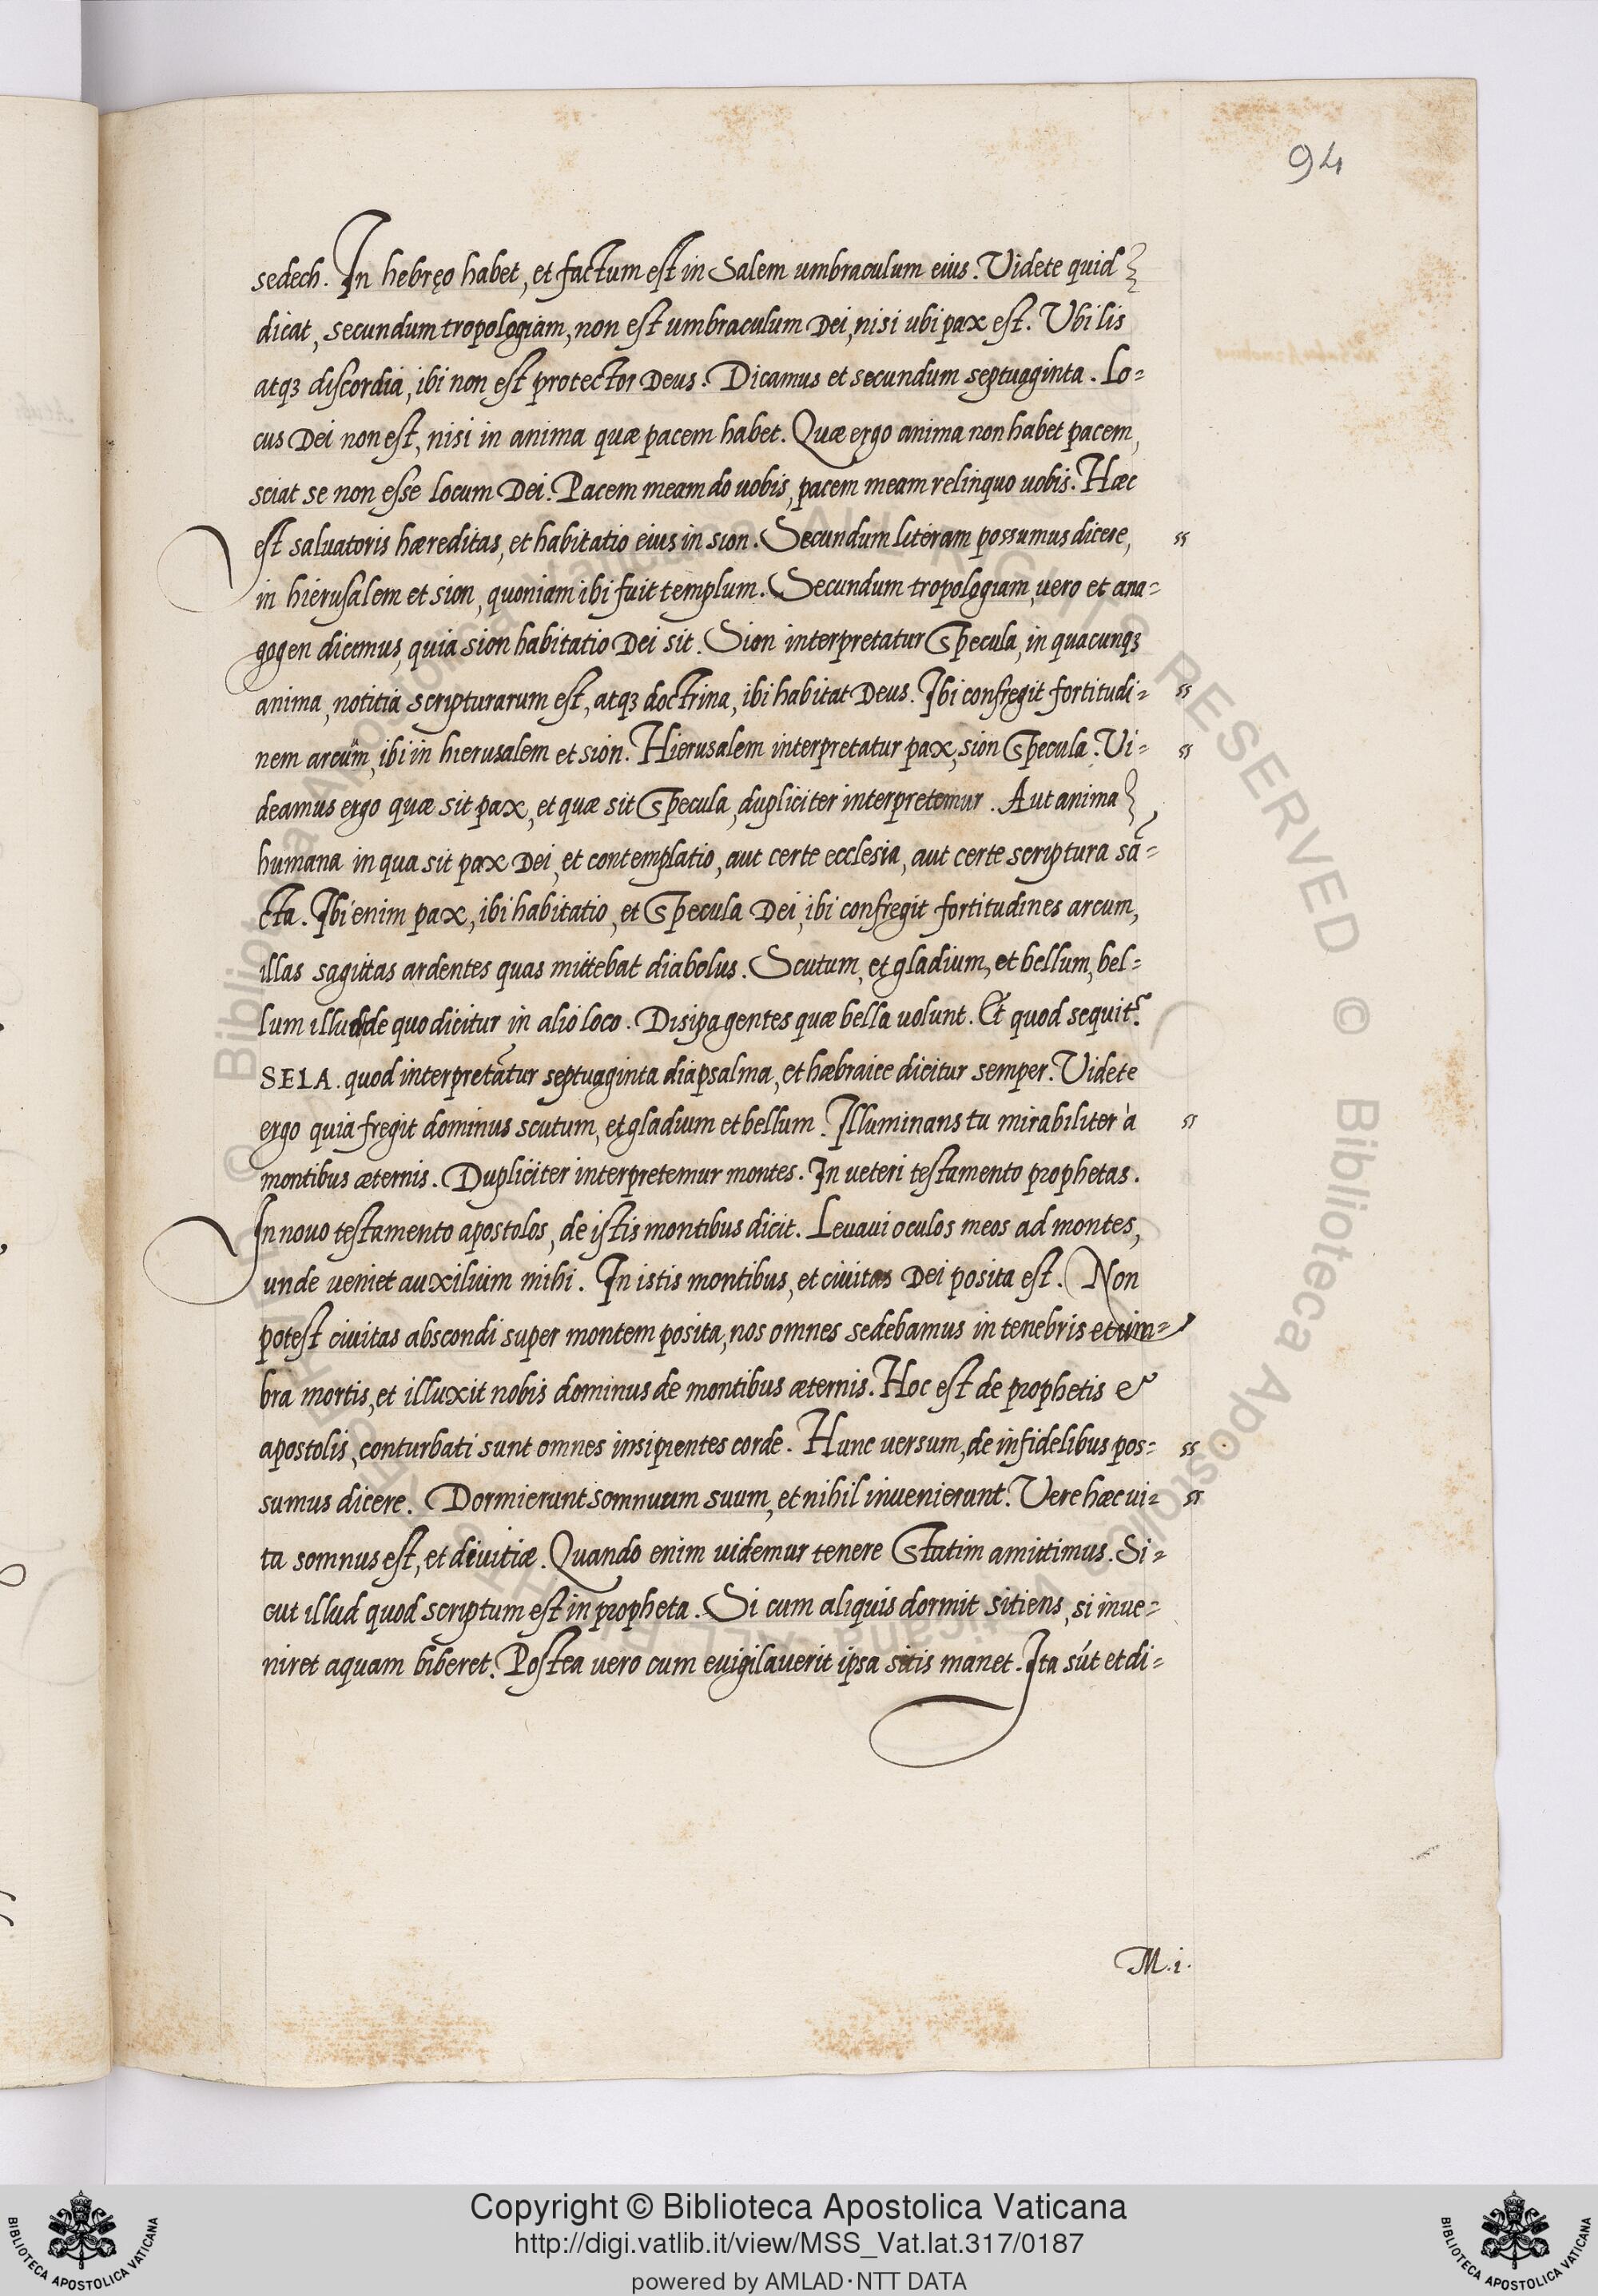 94
sedech. In hebręo habet, et factum est in Salem umbraculum eius. Videte quid
dicat, secundum tropologiam, non est umbraculum Dei, nisi ubi pax est. Ubi lis
atqꝫ discordia, ibi non est protector Deus. Dicamus et secundum septuaginta. Lo=
cus Dei non est, nisi in anima quæ pacem habet. Quæ ergo anima non habet pacem,
sciat se non esse locum Dei. Pacem meam do uobis, pacem meam relinquo uobis. Hæc
est saluatoris hæreditas, et habitatio eius in sion. Secundum literam possumus dicere,
in hierusalem et sion, quoniam ibi fuit templum. Secundum tropologiam, vero et ana=
gogen dicimus, quia sion habitatio Dei sit. Sion interpretatur Specula, in quacunqꝫ
anima, notitia scripturarum est, atqꝫ doctrina, ibi habitat Deus. Ibi confregit fortitudi=
nem arcum, ibi in hierusalem et sion. Hierusalem interpretatur pax, sion Specula. Vi=
deamus ergo quæ sit pax, et quæ sit Specula, dupliciter interpretemur. Aut anima
humana in qua sit pax Dei, et contemplatio, aut certe ecclesia, aut certe scriptura sã=
cta. Ibi enim pax, ibi habitatio, et Specula Dei, ibi confregit fortitudines arcum,
illas sagittas ardentes quas mittebat diabolus. Scutum, et gladium, et bellum, bel=
lum illud de quo dicitur in alio loco. Disipa gentes quæ bella uolunt. Et quod sequit᷑.
SELA. quod interpretatur septuaginta diapsalma, et hæbraice dicitur semper. Videte
ergo quia fregit dominus scutum, et gladium et bellum. Illuminans tu mirabiliter à
montibus æternis. Dupliciter interpretemur montes. In ueteri testamento prophetas.
In nouo testamento apostolos, de istis montibus dicit. Levaui oculos meos ad montes,
unde ueniet auxilium mihi. In istis montibus, et ciuitas Dei posita est. Non
potest ciuitas abscondi super montem posita, nos omnes sedebamus in tenebris et um=
bra mortis, et illuxit nobis dominus de montibus æternis. Hoc est de prophetis &
apostolis, conturbati sunt omnes insipientes corde. Hunc uersum, de infidelibus pos=
sumus dicere. Dormierunt somnuum suum, et nihil invenierunt. Vere hæc ui=
ta somnus est, et diuitiæ. Quando enim uidemur tenere Statim amittimus. Si=
cut illud quod scriptum est in propheta. Si cum aliquis dormit sitiens, si inue=
niret aquam biberet. Postea vero cum evigilaverit ipsa sitis manet. Ita sũt et di=
M.i.
Copyright © Biblioteca Apostolica Vaticana
http://digi.vatlib.it/view/MSS_Vat.lat.317/0187
powered by AMLAD·NTT DATA